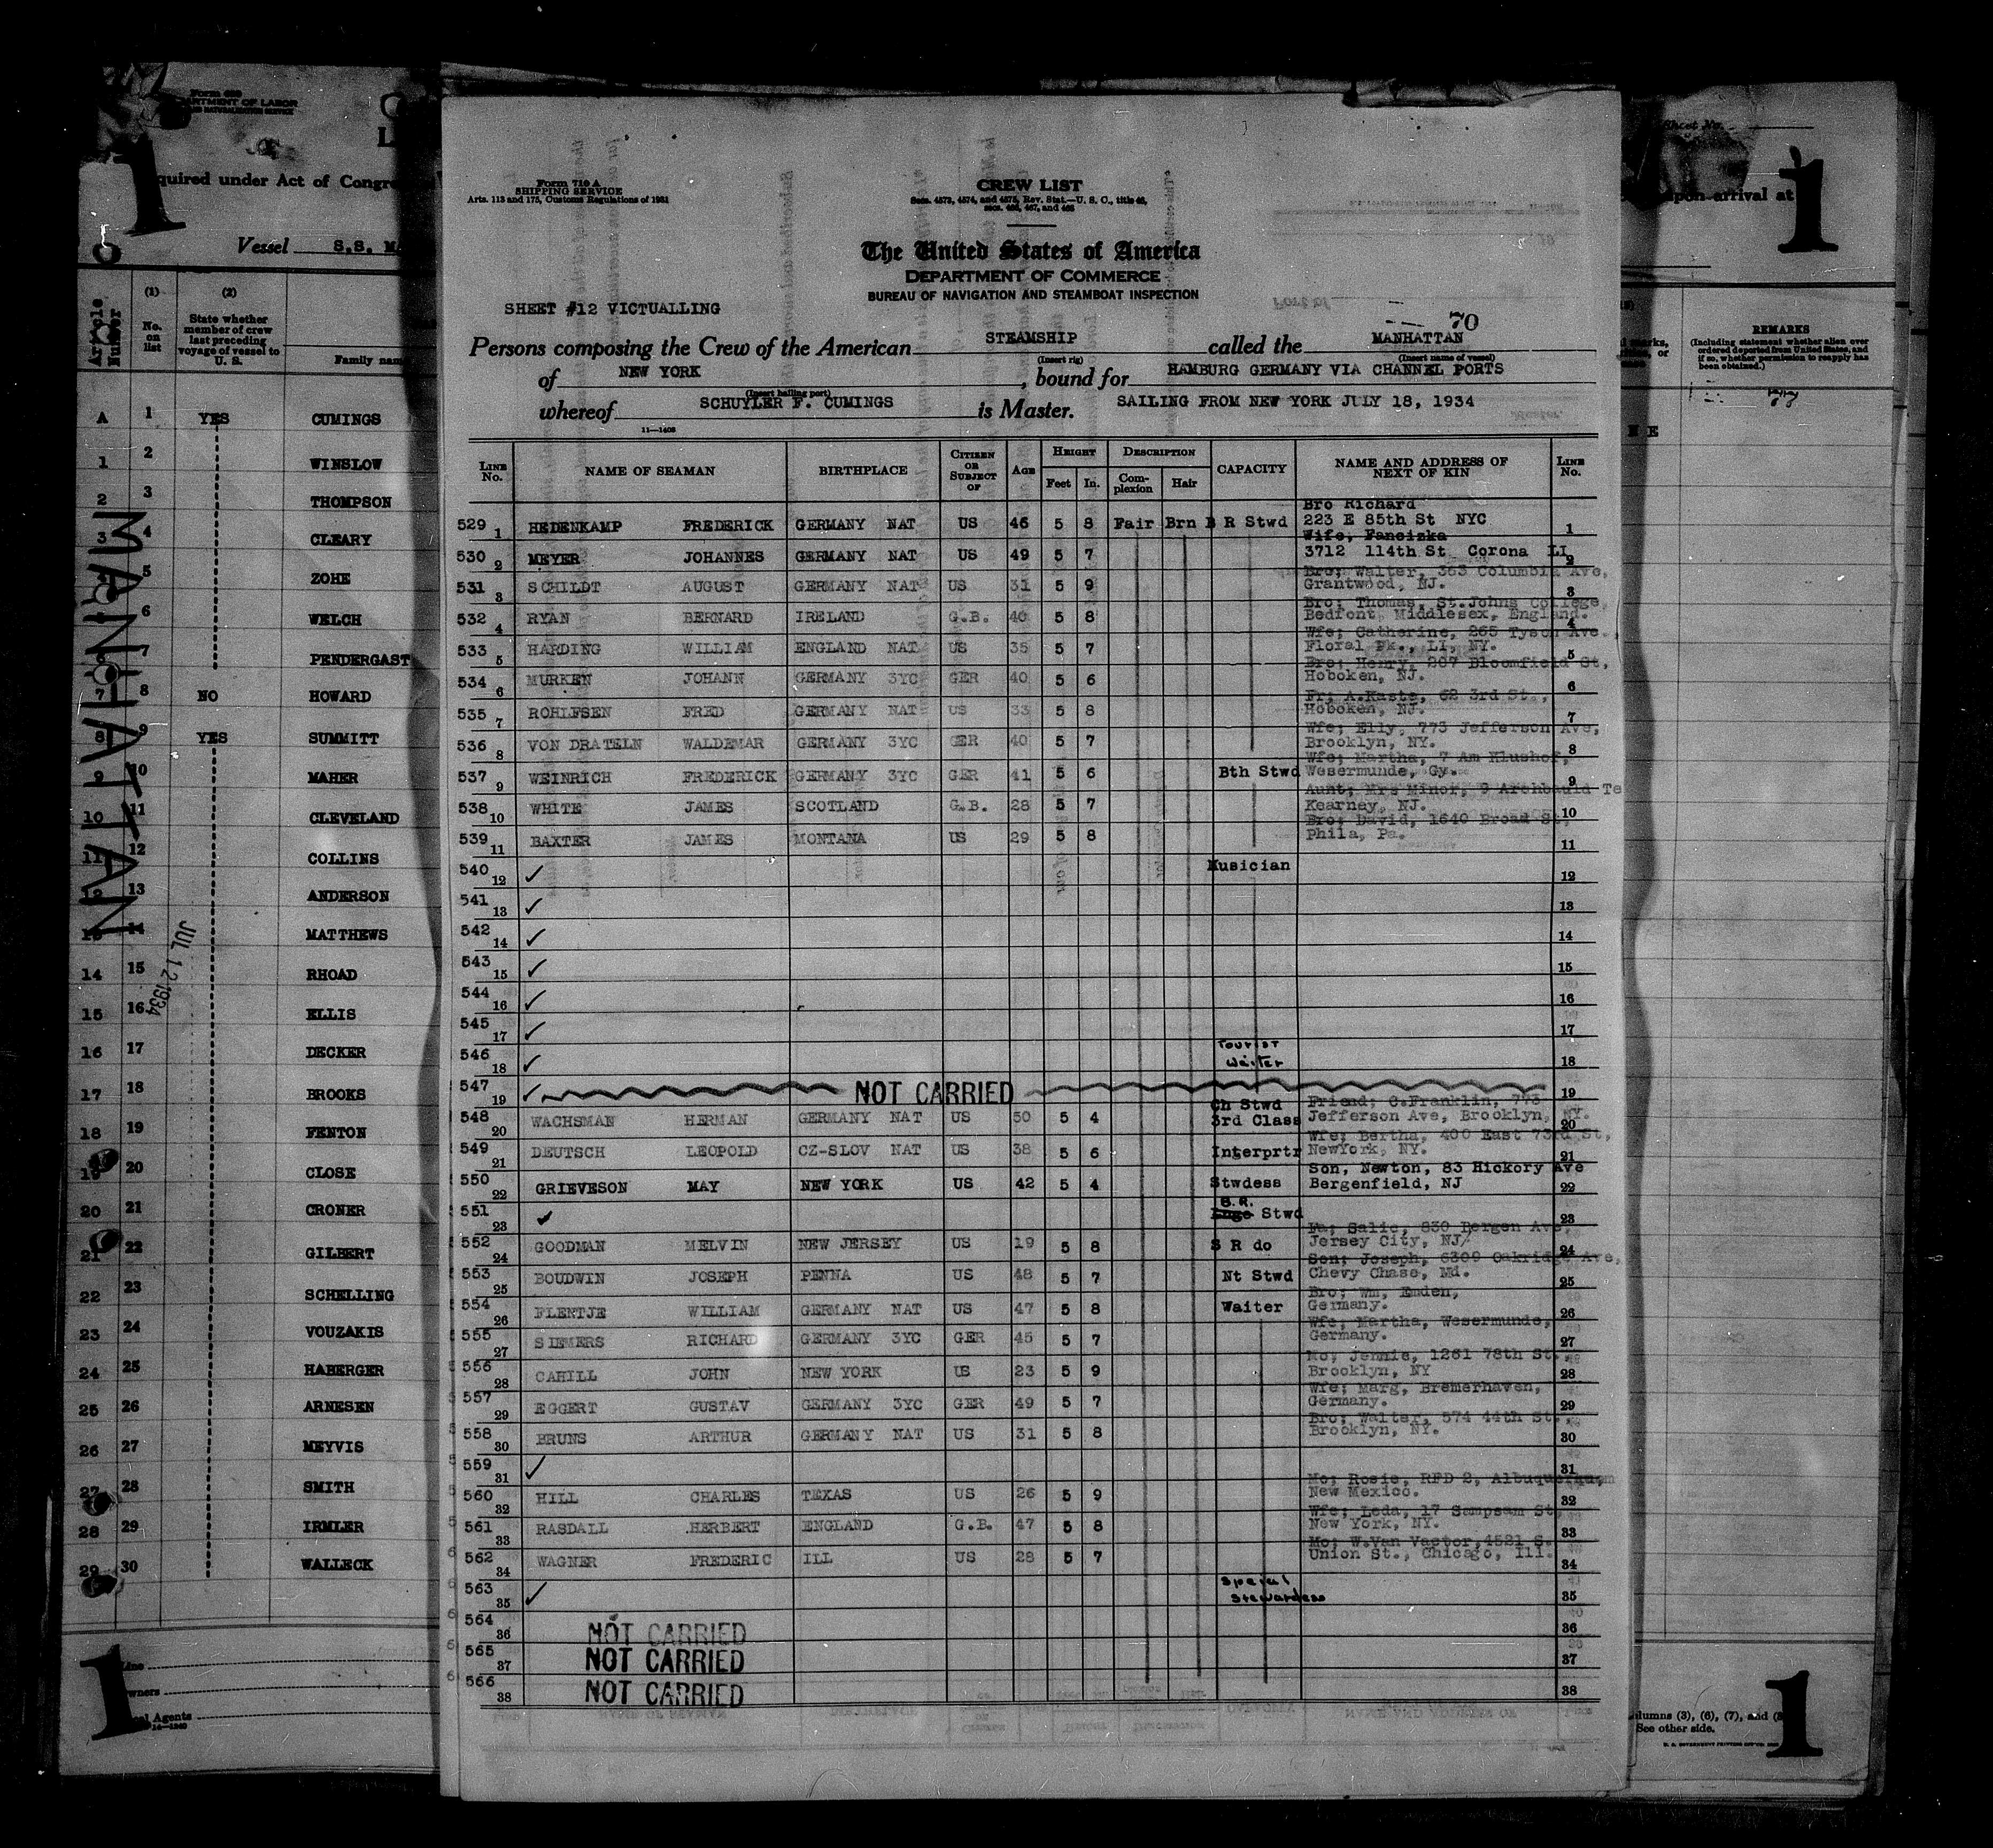 Form 710 A
SHIPPING SERVICE
Arts. 113 and 175, Customs Regulations of 1931
CREW LIST
Secs. 4573, 4574, and 4575, Rev. Stat.—U. S. C., title 46,
secs. 466, 467, and 468
The United States of America
DEPARTMENT OF COMMERCE
BUREAU OF NAVIGATION AND STEAMBOAT INSPECTION
SHEET #12 VICTUALLING
70
Persons composing the Crew of the American STEAMSHIP called the MANHATTAN
(Insert rig) (Insert name of vessel)
of NEW YORK, bound for HAMBURG GERMANY VIA CHANNEL PORTS
(Insert hailing port)
whereof SCHUYLER F. CUMINGS is Master. SAILING FROM NEW YORK JULY 18, 1934
11—1408
LINE No. NAME OF SEAMAN BIRTHPLACE CITIZEN OR SUBJECT OF AGE HEIGHT Feet In. DESCRIPTION Complexion Hair CAPACITY NAME AND ADDRESS OF NEXT OF KIN LINE No.
529 1 HEDENKAMP FREDERICK GERMANY NAT US 46 5 8 Fair Brn B R Stwd Bro Richard 223 E 85th St NYC 1
530 2 MEYER JOHANNES GERMANY NAT US 49 5 7 Wife, Fancizka 3712 114th St Corona LI 2
531 3 SCHILDT AUGUST GERMANY NAT US 31 5 9 Bro; Walter, 363 Columbia Ave, Grantwood, NJ. 3
532 4 RYAN BERNARD IRELAND G.B. 40 5 8 Bro; Thomas, St.Johns College, Bedfont, Middlesex, England. 4
533 5 HARDING WILLIAM ENGLAND NAT US 35 5 7 Wfe; Catherine, 265 Tyson Ave., Floral Pk., LI, NY. 5
534 6 MURKEN JOHANN GERMANY 3YC GER 40 5 6 Bro; Henry, 207 Bloomfield St, Hoboken, NJ. 6
535 7 ROHLFSEN FRED GERMANY NAT US 33 5 8 Fr; A.Kaste, 62 3rd St., Hoboken, NJ. 7
536 8 VON DRATELN WALDEMAR GERMANY 3YC GER 40 5 7 Wfe; Elly, 773 Jefferson Ave, Brooklyn, NY. 8
537 9 WEINRICH FREDERICK GERMANY 3YC GER 41 5 6 Bth Stwd Wfe; Martha, 7 Am Klushof, Wesermunde, Gy. 9
538 10 WHITE JAMES SCOTLAND G.B. 28 5 7 Aunt; Mrs Minor, 9 Archbauld Te Kearney, NJ. 10
539 11 BAXTER JAMES MONTANA US 29 5 8 Bro; David, 1640 Broad St, Phila, Pa. 11
540 12 ✓ Musician 12
541 13 ✓ 13
542 14 ✓ 14
543 15 ✓ 15
544 16 ✓ 16
545 17 ✓ 17
546 18 ✓ Tourist Waiter 18
547 19 ✓ NOT CARRIED 19
548 20 WACHSMAN HERMAN GERMANY NAT US 50 5 4 Ch Stwd 3rd Class Friend; C.Franklin, 773 Jefferson Ave, Brooklyn, NY. 20
549 21 DEUTSCH LEOPOLD CZ-SLOV NAT US 38 5 6 Interprtr Wfe; Bertha, 400 East 73rd St, NewYork, NY. 21
550 22 GRIEVESON MAY NEW YORK US 42 5 4 Stwdess Son, Newton, 83 Hickory Ave Bergenfield, NJ 22
551 23 ✓ B.R. Stwd 23
552 24 GOODMAN MELVIN NEW JERSEY US 19 5 8 S R do Fa; Salic, 830 Bergen Ave, Jersey City, NJ 24
553 25 BOUDWIN JOSEPH PENNA US 48 5 7 Nt Stwd Son; Joseph, 6309 Oakridge Ave, Chevy Chase, Md. 25
554 26 FLENTJE WILLIAM GERMANY NAT US 47 5 8 Waiter Bro; Wm, Emden, Germany. 26
555 27 SIEMERS RICHARD GERMANY 3YC GER 45 5 7 Wfe; Martha, Wesermunde, Germany. 27
556 28 CAHILL JOHN NEW YORK US 23 5 9 Mo; Jennie, 1261 78th St., Brooklyn, NY 28
557 29 EGGERT GUSTAV GERMANY 3YC GER 49 5 7 Wfe; Marg, Bremerhaven, Germany. 29
558 30 BRUNS ARTHUR GERMANY NAT US 31 5 8 Bro; Walter, 574 44th St., Brooklyn, NY. 30
559 31 ✓ 31
560 32 HILL CHARLES TEXAS US 26 5 9 Mo; Rosie, RFD 2, Albuquerque New Mexico. 32
561 33 RASDALL HERBERT ENGLAND G.B. 47 5 8 Wfe; Leda, 17 Sampsam St, New York, NY. 33
562 34 WAGNER FREDERIC ILL US 28 5 7 Mo; W.Van Vactor, 4521 S. Union St., Chicago, Ill. 34
563 35 ✓ Special Stewardess 35
564 36 NOT CARRIED 36
565 37 NOT CARRIED 37
566 38 NOT CARRIED 38
1
quired under Act of Congre
Vessel S.S. MA
Article Number (1) No. on list (2) State whether member of crew last preceding voyage of vessel to U. S. Family nam
A 1 YES CUMINGS
1 2 WINSLOW
2 3 THOMPSON
3 4 CLEARY
5 ZOHE
6 WELCH
7 PENDERGAST
7 8 NO HOWARD
8 9 YES SUMMITT
9 10 MAHER
10 11 CLEVELAND
11 12 COLLINS
12 13 ANDERSON
13 14 MATTHEWS
14 15 RHOAD
15 16 ELLIS
16 17 DECKER
17 18 BROOKS
18 19 FENTON
19 20 CLOSE
20 21 CRONER
21 22 GILBERT
22 23 SCHELLING
23 24 VOUZAKIS
24 25 HABERGER
25 26 ARNESEN
26 27 MEYVIS
27 28 SMITH
28 29 IRMLER
29 30 WALLECK
MANHATTAN
JUL 12 1934
1
Line
Owners
Local Agents
14—1240
Sheet No.
upon arrival at
1
REMARKS
(Including statement whether alien ever ordered deported from United States, and if so, whether permission to reapply has been obtained.)
columns (3), (6), (7), and (8
See other side.
U. S. GOVERNMENT PRINTING OFFICE
1